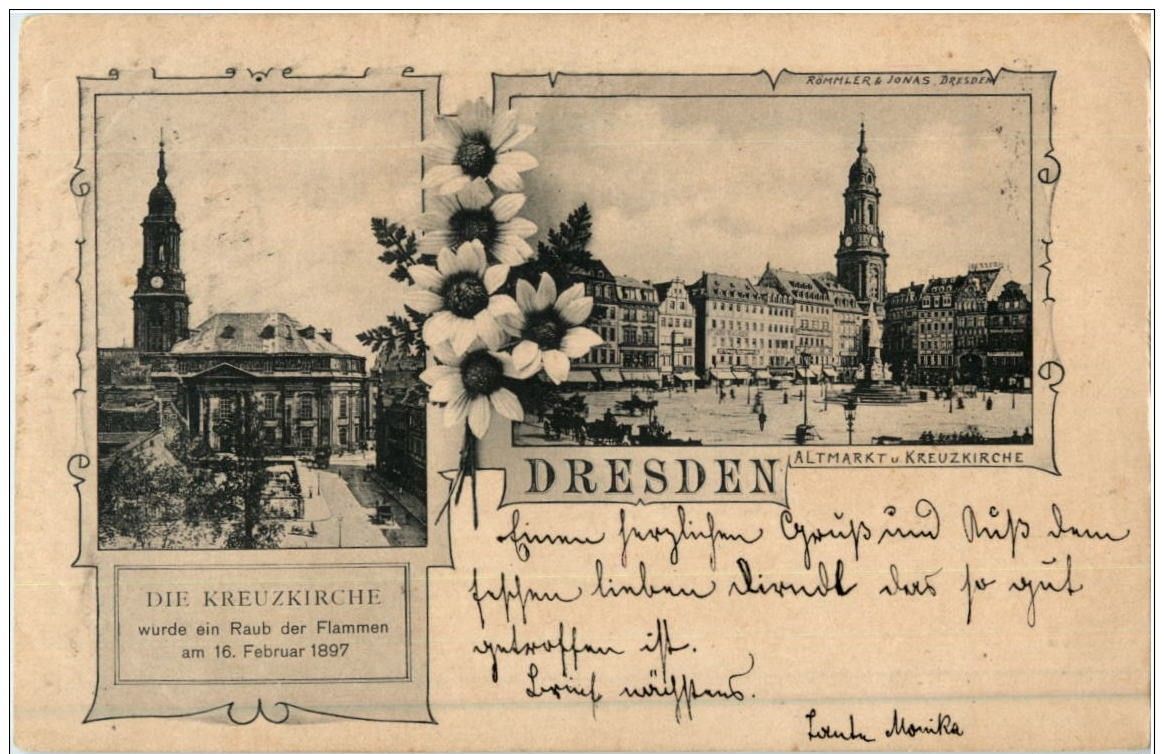 RÖMMLER & JONAS, DRESDEN
DRESDEN
ALTMARKT u. KREUZKIRCHE
DIE KREUZKIRCHE
wurde ein Raub der Flammen
am 16. Februar 1897
Einen herzlichen Gruß und Kuß dem
feschen lieben Dirndl das so gut
getroffen ist.
Brief nächstens.
Tante Monika